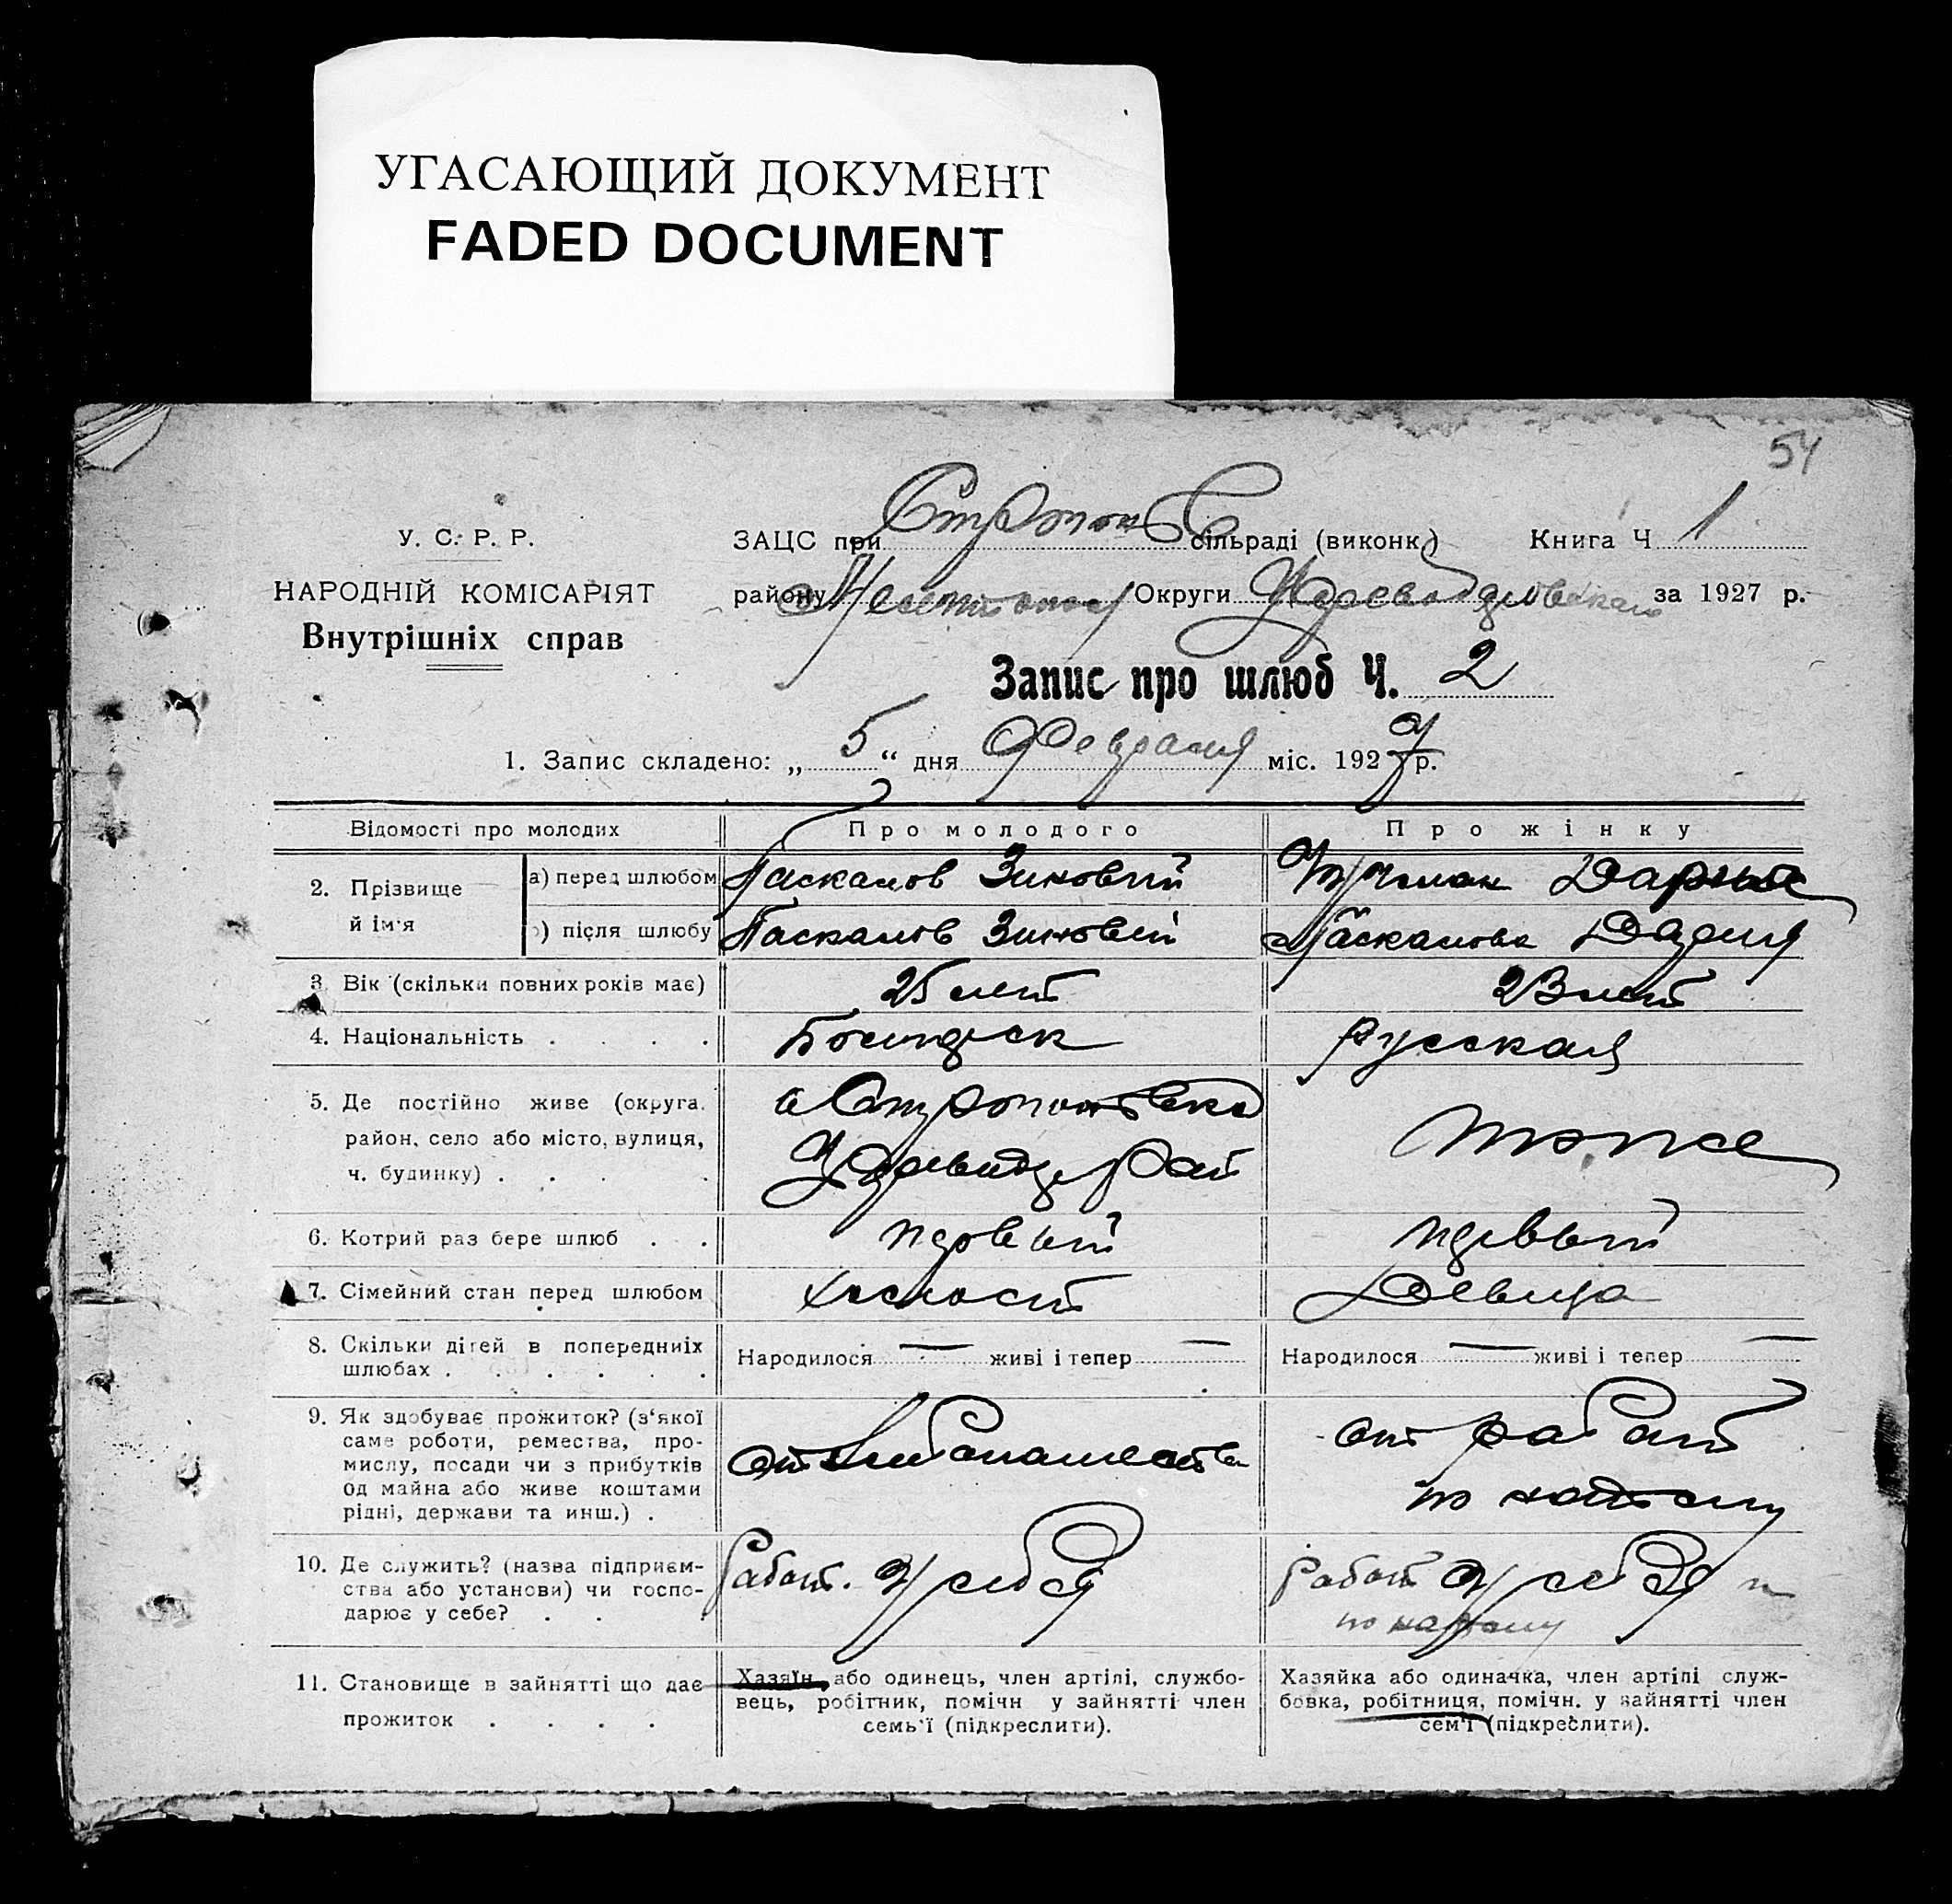 УГАСАЮЩИЙ ДОКУМЕНТ
FADED DOCUMENT
54
У. С. Р. Р.
НАРОДНІЙ КОМІСАРІЯТ
Внутрішніх справ
ЗАЦС при сільраді (виконк.) Книга Ч 1
району Округи за 1927 р.
Запис про шлюб Ч. 2
1. Запис складено: „ 5 “ дня Февраля міс. 1927 р.
Відомості про молодих Про молодого Про жінку
2. Прізвище й ім'я
а) перед шлюбом Паскалов Зиновий Дарья
б) після шлюбу Паскалов Зиновий Паскалова Дария
3. Вік (скільки повних років має) 25 лет 23 лет
4. Національність . . . . русская
5. Де постійно живе (округа, район, село або місто, вулиця, ч. будинку) . . . . тоже
6. Котрий раз бере шлюб . . первый первый
7. Сімейний стан перед шлюбом холост Девица
8. Скільки дітей в попередниіх шлюбах . . . . . . Народилося — живі і тепер — Народилося — живі і тепер —
9. Як здобуває прожиток? (з'якої
саме роботи, ремества, про-
мислу, посади чи з прибутків
од майна або живе коштами
рідні, держави та инш.) .
от хлебопашества
от работ
по найому
10. Де служить? (назва підприєм-
ства або установи) чи госпо-
дарює у себе? . . .
Работ. у себя
Работ у себя и
по найому
11. Становище в зайнятті що дає
прожиток . . . .
Хазяїн, або одинець, член артілі, службо-
вець, робітник, помічн у зайнятті член
семь'ї (підкреслити).
Хазяйка або одиначка, член артілі служ-
бовка, робітниця, помічн. у зайнятті член
сем'ї (підкреслити).